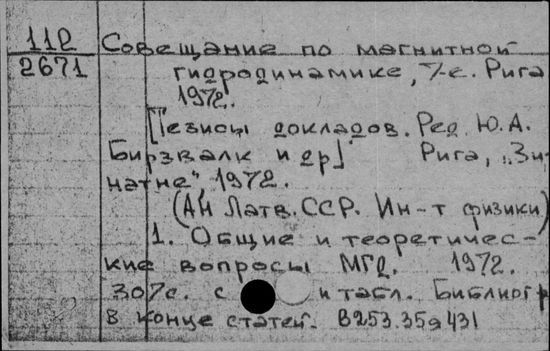 112
2671
Совещание по магнитной
гидродинамике, 7-е. Рига
1972.
[Тезисы докладов. Ред. Ю.А.
Бирзвалк и др]. Рига, „Зи-
натне", 1972.
(АН Латв. ССР. Ин-т физики)
1. Общие и теоретичес-
кие вопросы МГД. 1972.
307с. с и табл. Библиогр
в конце статей. В253.35я431